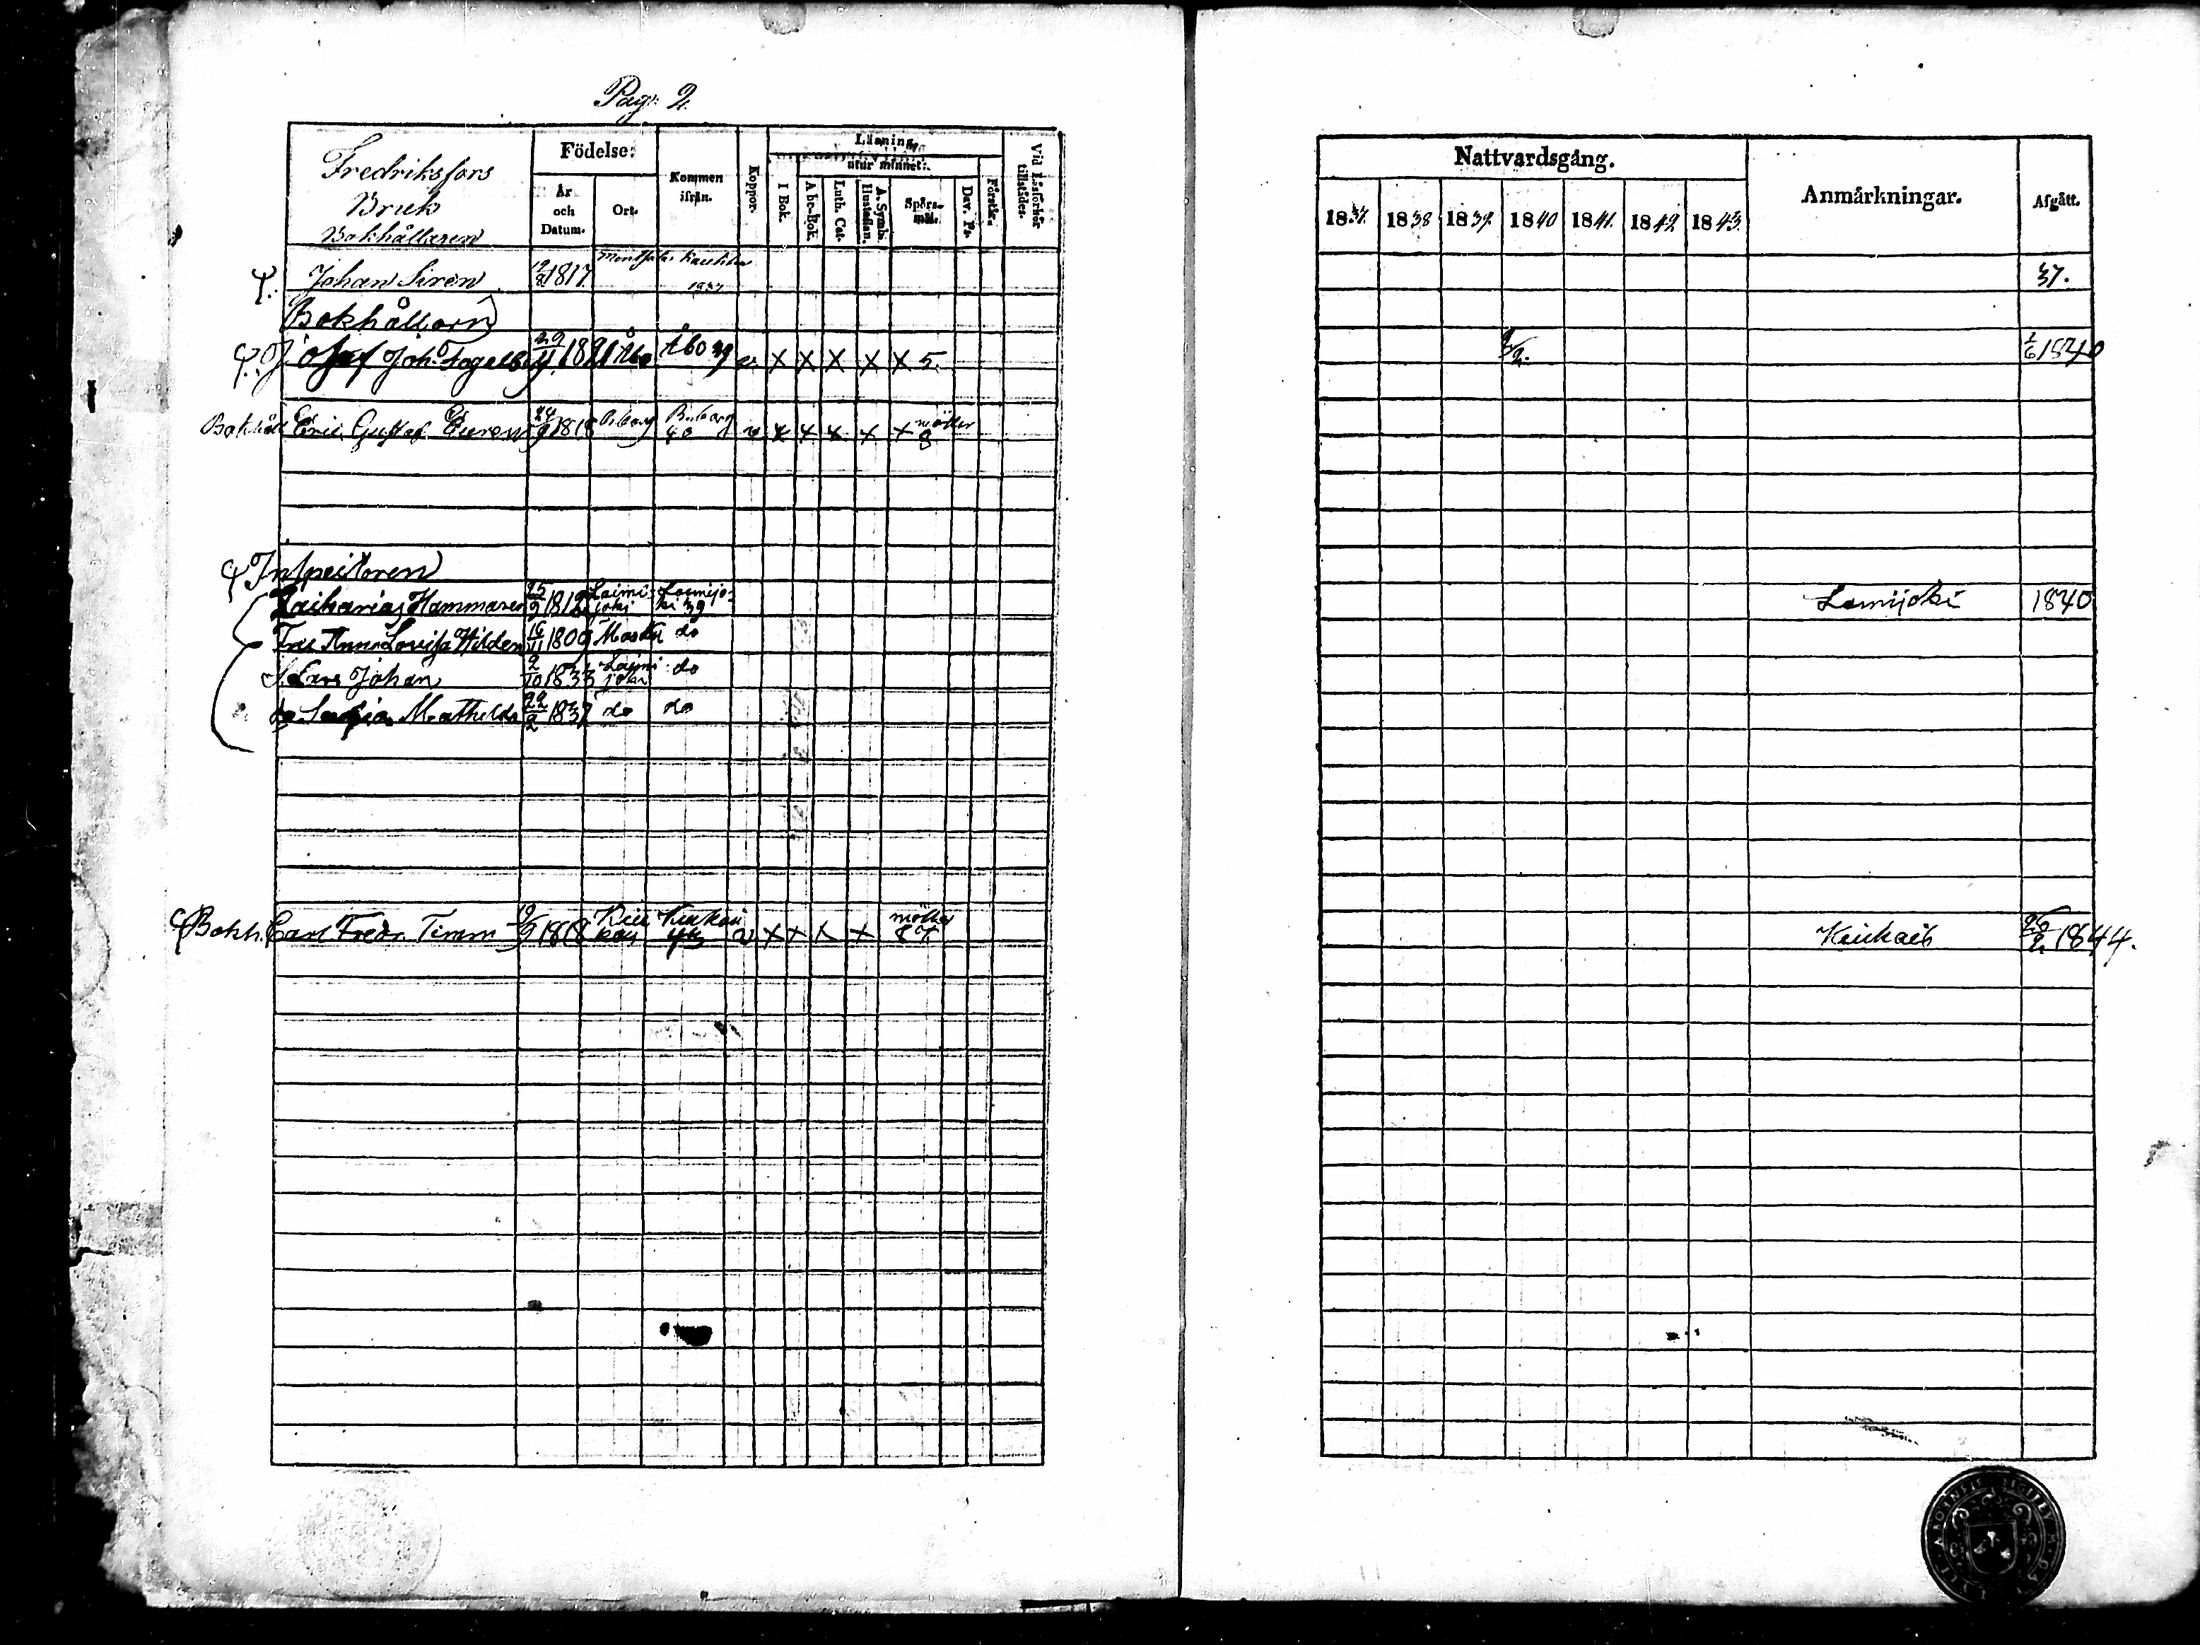 Pag: 2.
Fredriksfors
Bruk
Bokhållaren
Födelse:
År och Datum.
Ort.
Kommen ifrån.
Koppor.
Läsning,
utur minnet:
I Bok.
Abc-Bok.
Luth. Cat.
A. Symb. Hustaflan.
Spörsmål.
Dav. Ps.
Förstår.
Vid Läsförhör tillstädes.
Johan Siren 1817. 1837
Bokhållarn
Johan Joh. Fogelberg 29/11 1821 Åbo Åbo 39 v. x x x x x 5.
Bokhåll Eric Gustaf Euren 24/9 1818 Bnborg 40 v x x x x x möller 8
Inspectoren
Zacharias Hammaren 25/9 1812 Loimijoki Loimijoki 39
Fru Anna Lovisa Hilden 16/11 1809 Masku do
S. Lars Johan 2/10 1833 Loimijoki do
do Sofia Mathilda 22/2 1837 do do
Bokh. Carl Fredr. Timm 19/9 1818 Kiukais Kiukais 42 v x x x x möller 8 7.
Nattvardsgång.
Anmärkningar.
Afgått.
1837. 1838 1839. 1840 1841. 1842 1843.
37.
2/2. 1/6 1840
Lomijoki 1840
Kiukais 26/2 1844.